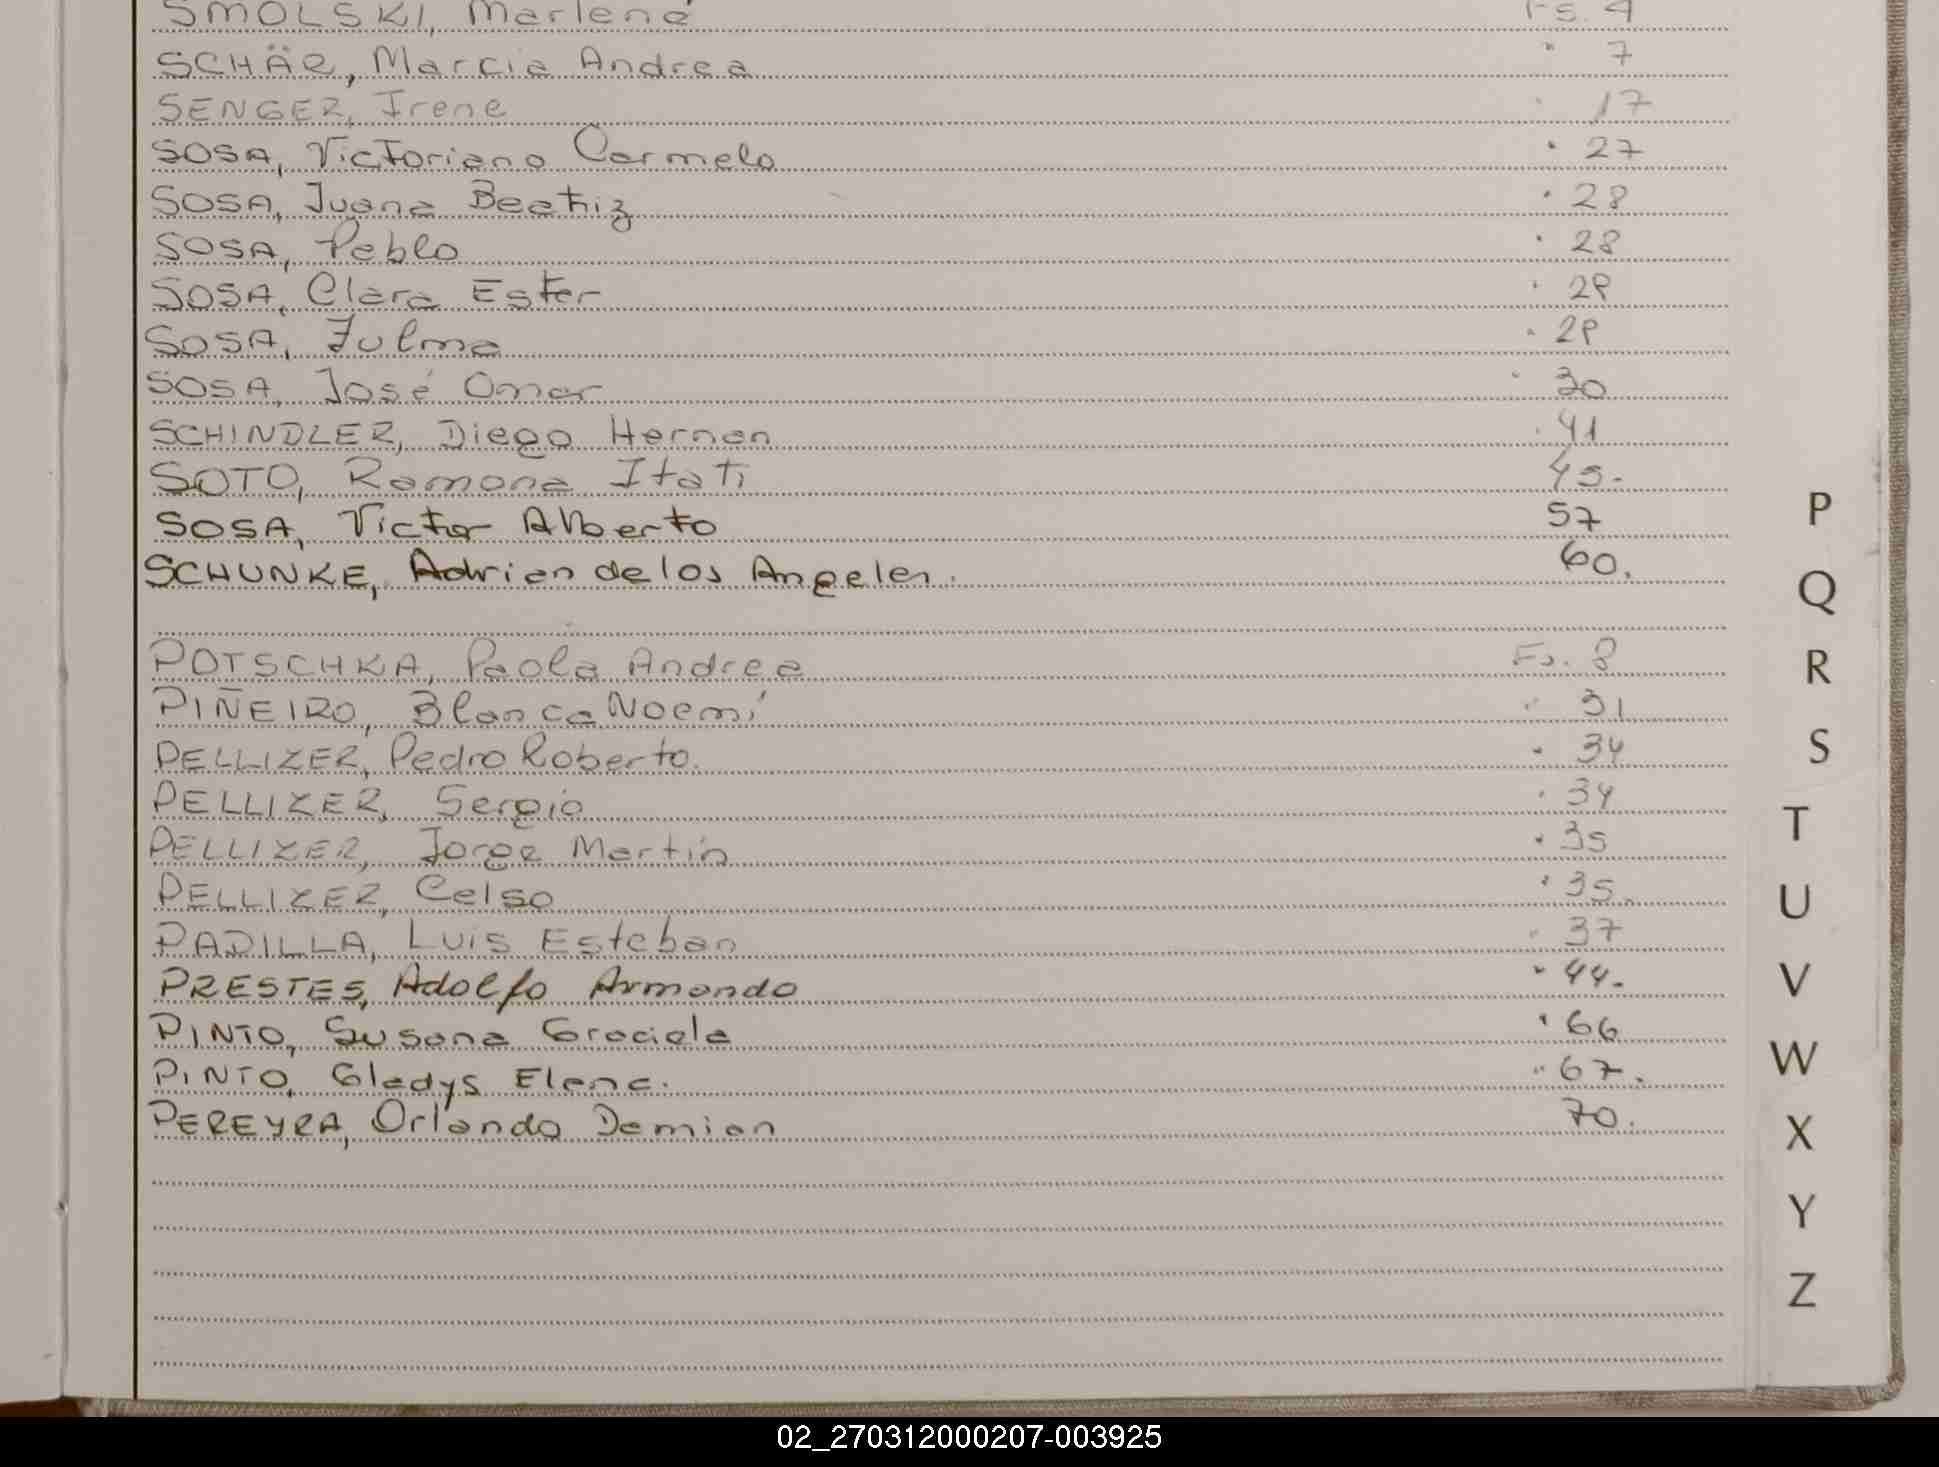 SMOLSKI, Marlene Fs. 4
SCHÄR, Marcia Andrea " 7
SENGER, Irene " 17
SOSA, Victoriano Carmelo " 27
SOSA, Juana Beatriz " 28
SOSA, Pablo " 28
SOSA, Clara Ester " 29
SOSA, Zulma " 29
SOSA, José Omar " 30
SCHINDLER, Diego Hernan " 41
SOTO, Ramona Itati 45.
SOSA, Victor Alberto 57
SCHUNKE, Adrian de los Angeles. 60.
POTSCHKA, Paola Andrea Fs. 8
PIÑEIRO, Blanca Noemí " 31
PELLIZER, Pedro Roberto. " 34
PELLIZER, Sergio " 34
PELLIZER, Jorge Martín " 35
PELLIZER, Celso " 35.
PADILLA, Luis Esteban " 37
PRESTES, Adolfo Armando " 44.
PINTO, Susana Graciela " 66
PINTO, Gladys Elena. " 67.
PEREYRA, Orlando Damian 70.
P
Q
R
S
T
U
V
W
X
Y
Z
02_270312000207-003925